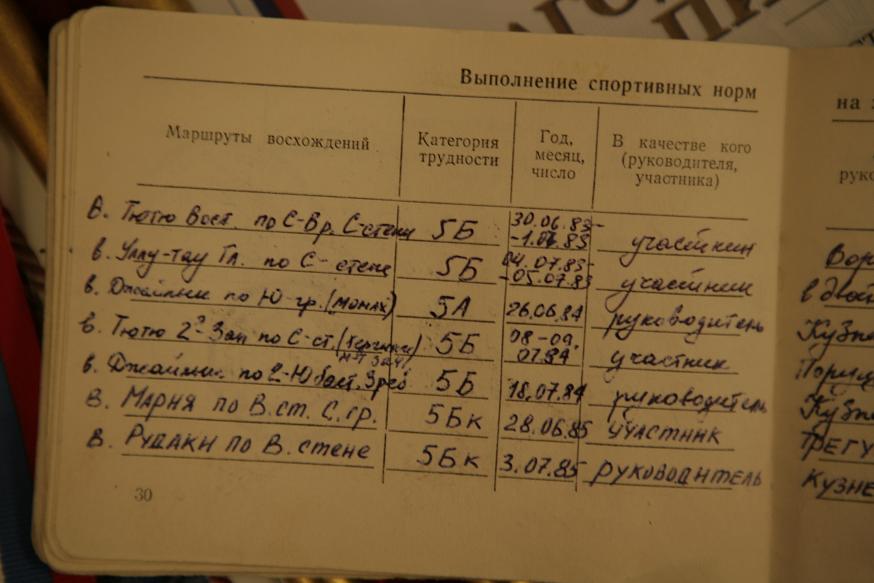 Выполнение спортивных норм
на
Маршруты восхождений
Категория трудности
Год, месяц, число
В качестве кого (руководителя, участника)
руко
В. Тютю Вост. по С-Вр. С-стены 5Б 30.06.83- участник
в. Уллу-тау Гл. по С- стене 5Б 04.07.83- -05.07.83 участник
в. Джайлык по Ю-гр. (монах) 5А 26.06.84 руководитель
в. Тютю 2ᵃ Зап по С-ст. 5Б 08-09. 07.84 участник
в. Джайлык по 2-Ю баст. 5Б 18.07.84 руководитель
В. Марня по В.ст. С.гр. 5Бк 28.06.85 участник
В. Рудаки по В. стене 5Бк 3.07.85 руководитель
Кузне
30